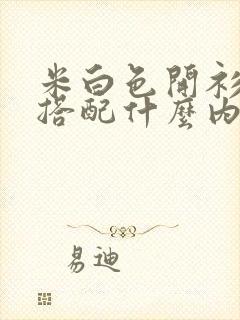 米白色開衫
搭配什麼內
易迪